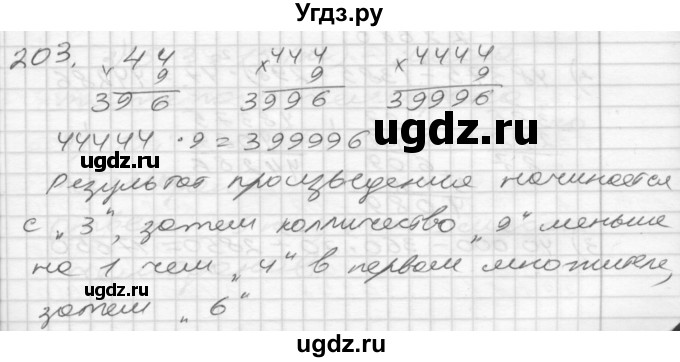 Угдз.ру
203.
44 444 4444
× 9 × 9 × 9
396 3996 39996
44444 · 9 = 399996
ugdz.ru
ugdz.ru
Результат произведения начинается
с „3“, затем колличество „9“ меньше
на 1 чем „4“ в первом множителе,
ugdz.ru
ugdz.ru
затем „6“
ugdz.ru